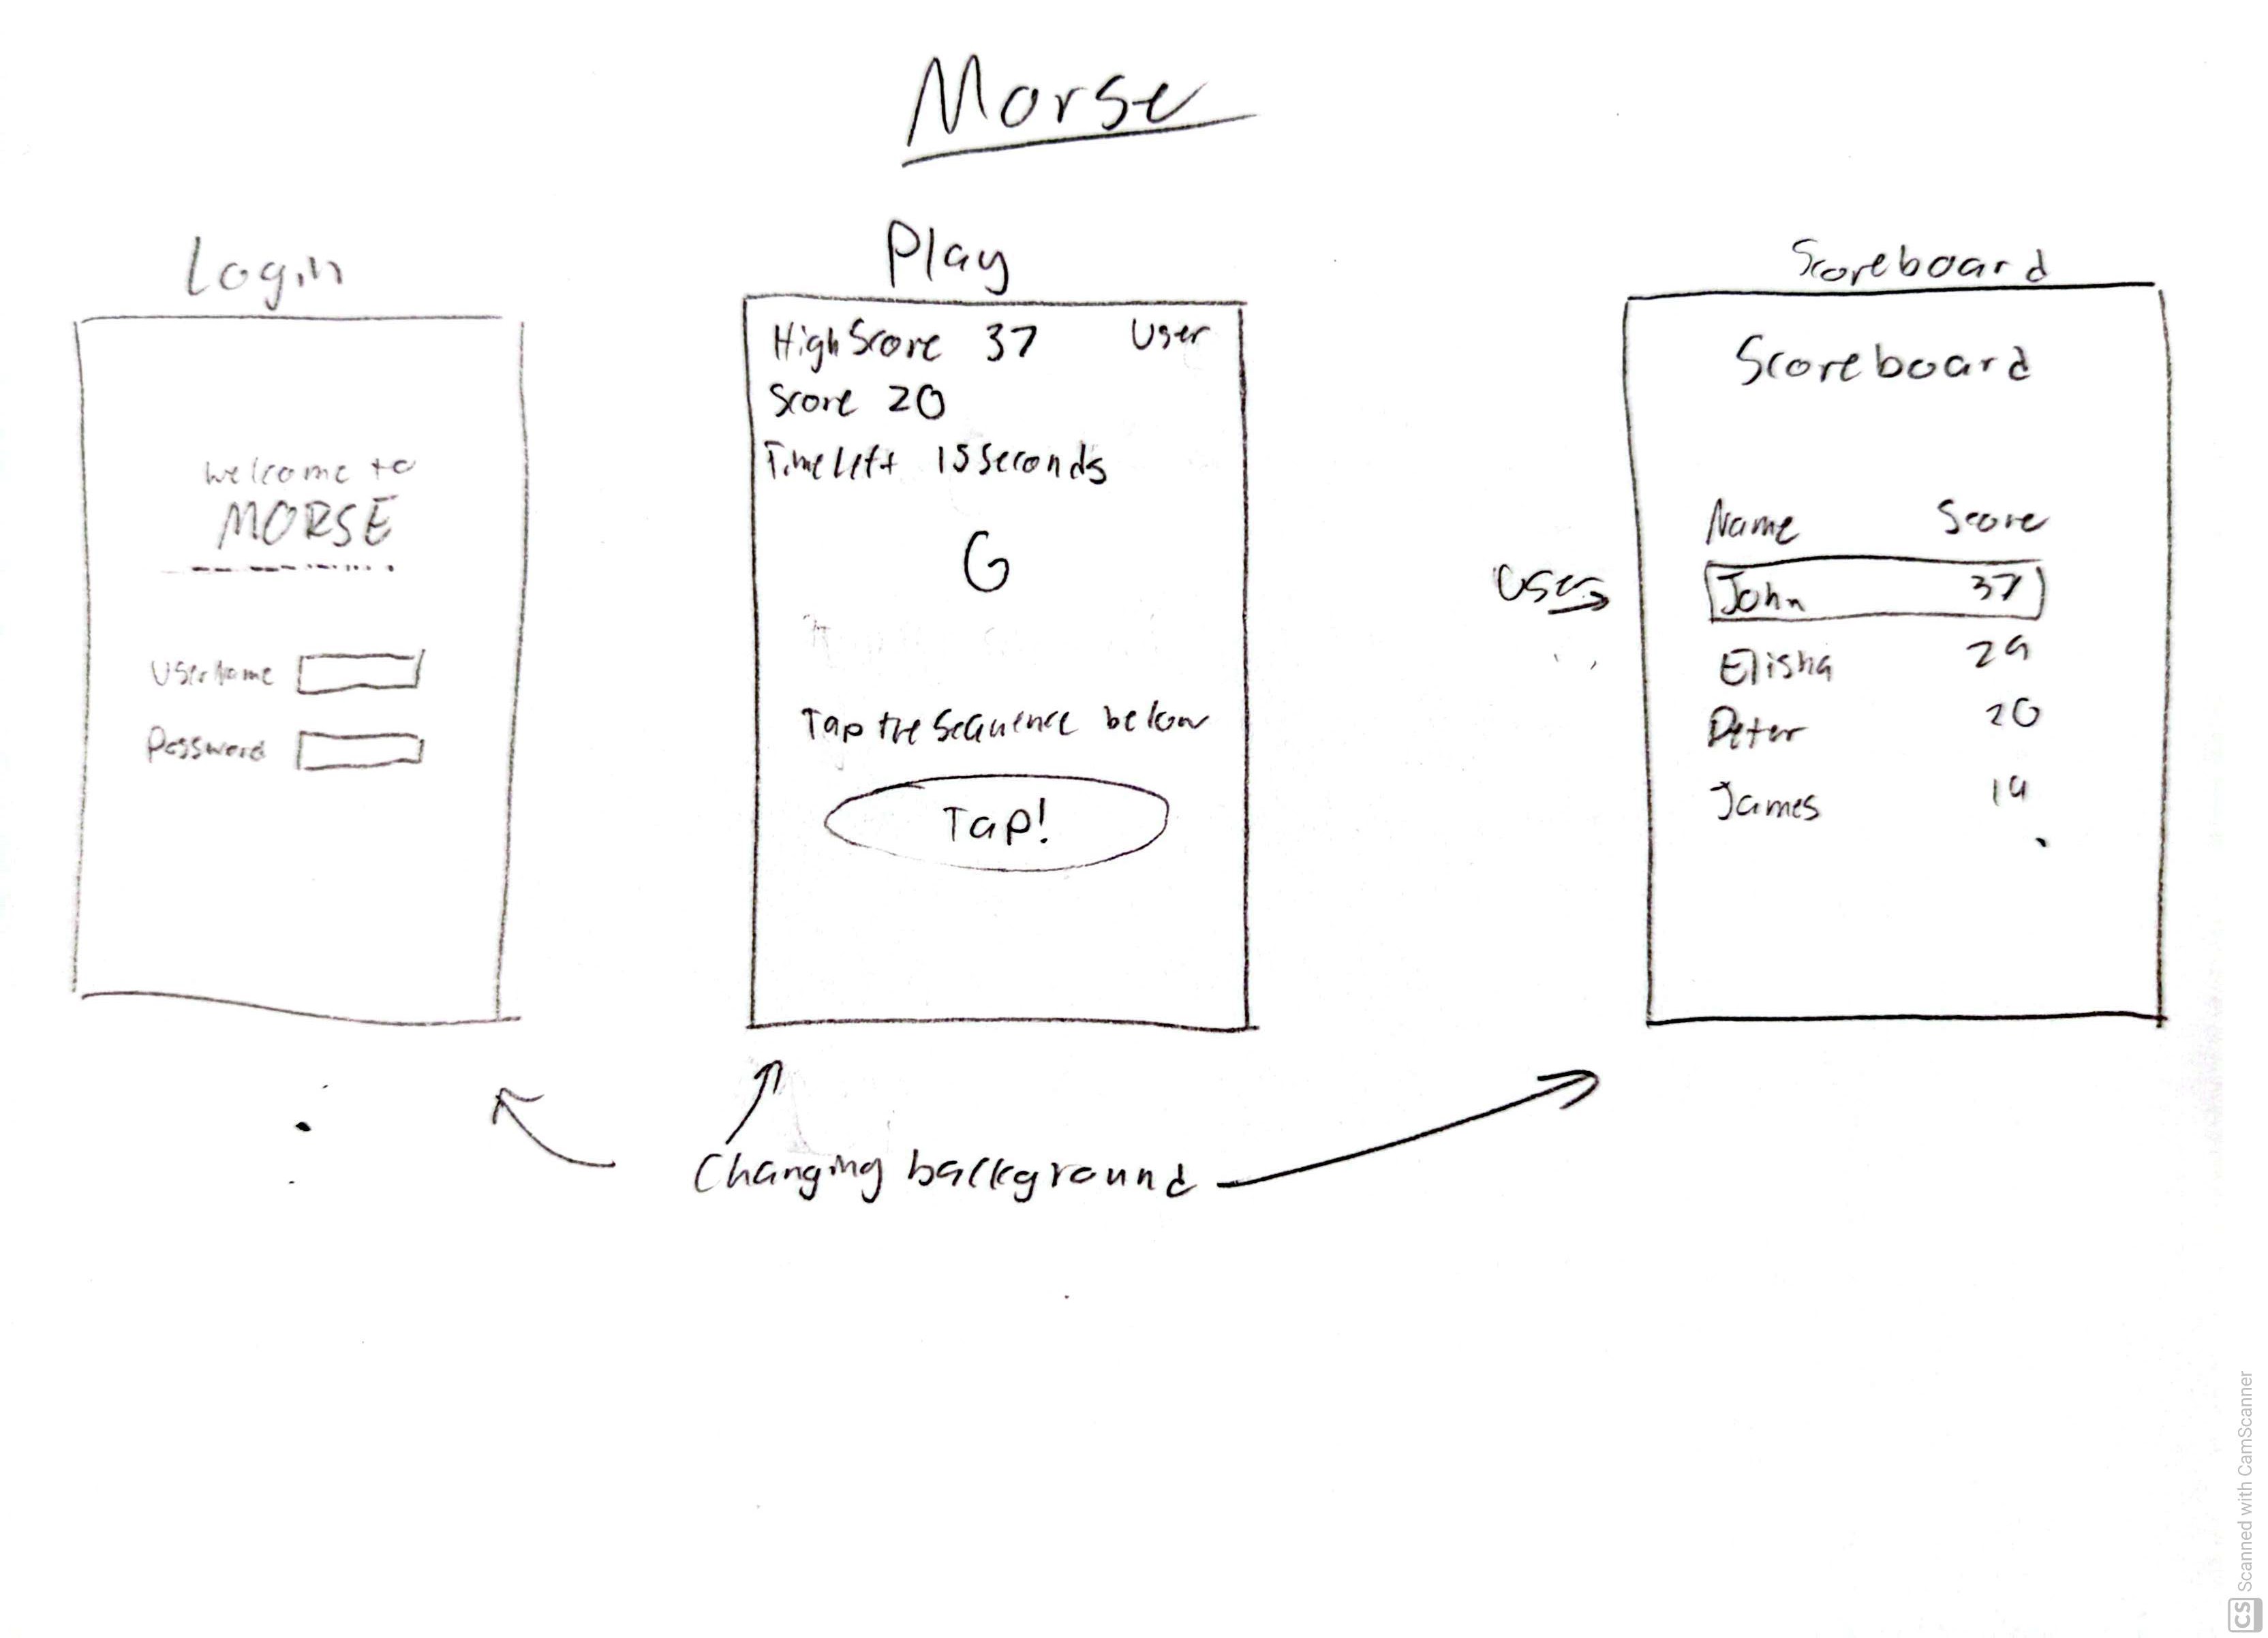 Morse
Login
Welcome to
MORSE
Username
Password
Play
High Score 37 User
Score 20
Time Left 15 Seconds
G
Tap the Sequence below
Tap!
Scoreboard
Scoreboard
Name Score
User
John 37
Elisha 29
Peter 20
James 19
Changing background
CS Scanned with CamScanner